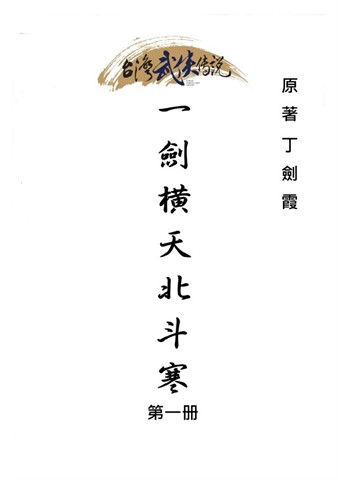 台灣武俠傳説
原著丁劍霞
一劍橫天北斗寒
第一册